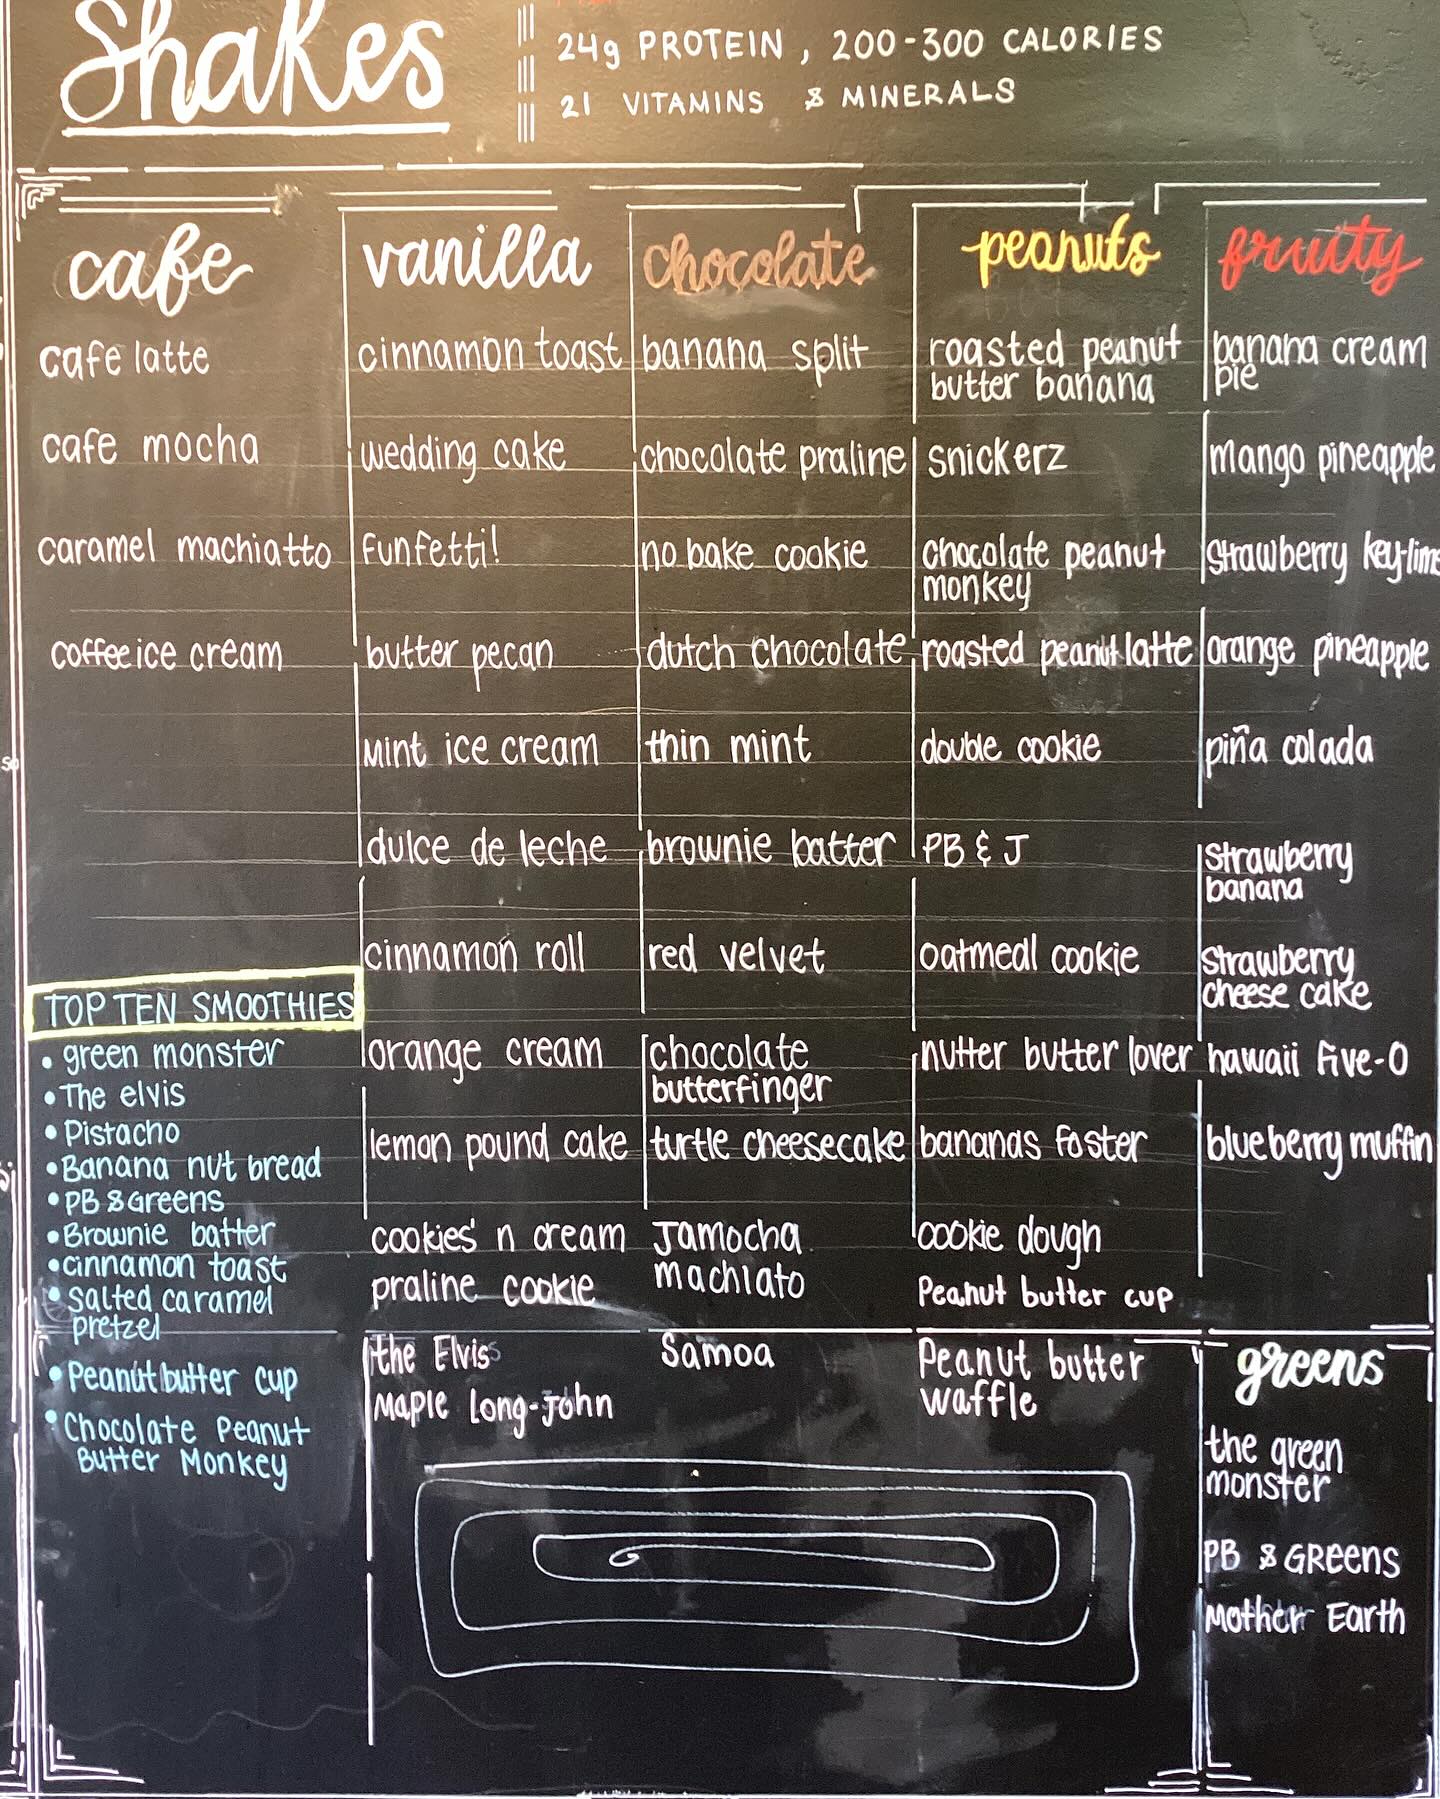 Shakes
24g PROTEIN, 200-300 CALORIES
21 VITAMINS & MINERALS
cafe
cafe latte
cafe mocha
caramel machiatto
coffee ice cream
TOP TEN SMOOTHIES
• green monster
• The elvis
• Pistacho
• Banana nut bread
• PB & Greens
• Brownie batter
• cinnamon toast
• salted caramel
pretzel
• Peanut butter cup
• Chocolate Peanut
Butter Monkey
vanilla
cinnamon toast
wedding cake
Funfetti!
butter pecan
Mint ice cream
dulce de leche
cinnamon roll
orange cream
lemon pound cake
cookies' n cream
praline cookie
the Elvis
Maple Long-John
chocolate
banana split
chocolate praline
no bake cookie
dutch chocolate
thin mint
brownie batter
red velvet
chocolate
butterfinger
turtle cheesecake
Jamocha
machiato
Samoa
peanuts
roasted peanut
butter banana
snickerz
chocolate peanut
monkey
roasted peanut latte
double cookie
PB & J
oatmeal cookie
nutter butter lover
bananas foster
cookie dough
Peanut butter cup
Peanut butter
waffle
fruity
banana cream
pie
mango pineapple
strawberry key-lime
orange pineapple
piña colada
strawberry
banana
strawberry
cheese cake
hawaii five-O
blueberry muffin
greens
the green
monster
PB & GReens
Mother Earth